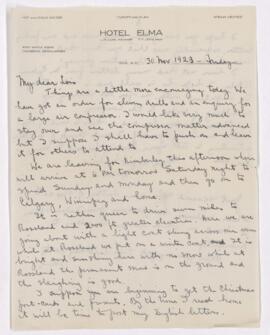 HOTEL ELMA
30 Nov 1923 - Friday
My dear Lou
Things are a little more encouraging today. We
have got an order for eleven drills and an enquiry for
a large air compressor. I would like very much to
stay over and see the compressor matter advanced
but I suppose I shall have to push on and leave
it for others to attend to.
We are leaving for Kimberley this afternoon where
will arrive at 6 am tomorrow Saturday night to
spend Sunday and Monday and then go on to
Calgary, Winnipeg and home.
It is rather queer to drive seven miles to
Rossland and 2000 ft greater elevation. Here we are
going about with a light coat skiing across our arms
while at Rossland we put on a winter coat and it is
bright and sunshiny here with no snow while at
Rossland the permanent snow is on the ground and
the sleighing is good.
I suppose you are beginning to get the Christmas
post-cards and presents. By the time I reach home
it will be time to post my English letters.